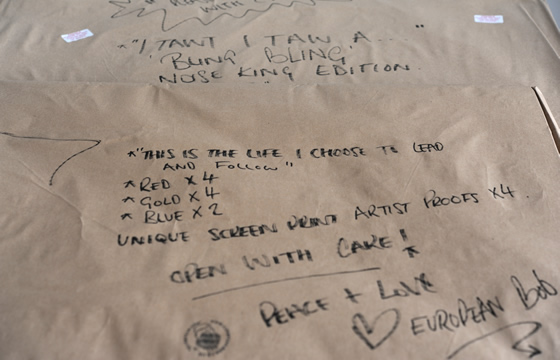 WITH
* "I TAWT I TAW A... "
'BLING BLING'
NOISE KING EDITION.
* "THIS IS THE LIFE I CHOOSE TO LEAD
AND FOLLOW"
* RED X 4
* GOLD X 4
* BLUE X 2
UNIQUE SCREEN PRINT ARTIST PROOFS X4.
OPEN WITH CARE! *
PEACE + LOVE
EUROPEAN BOB